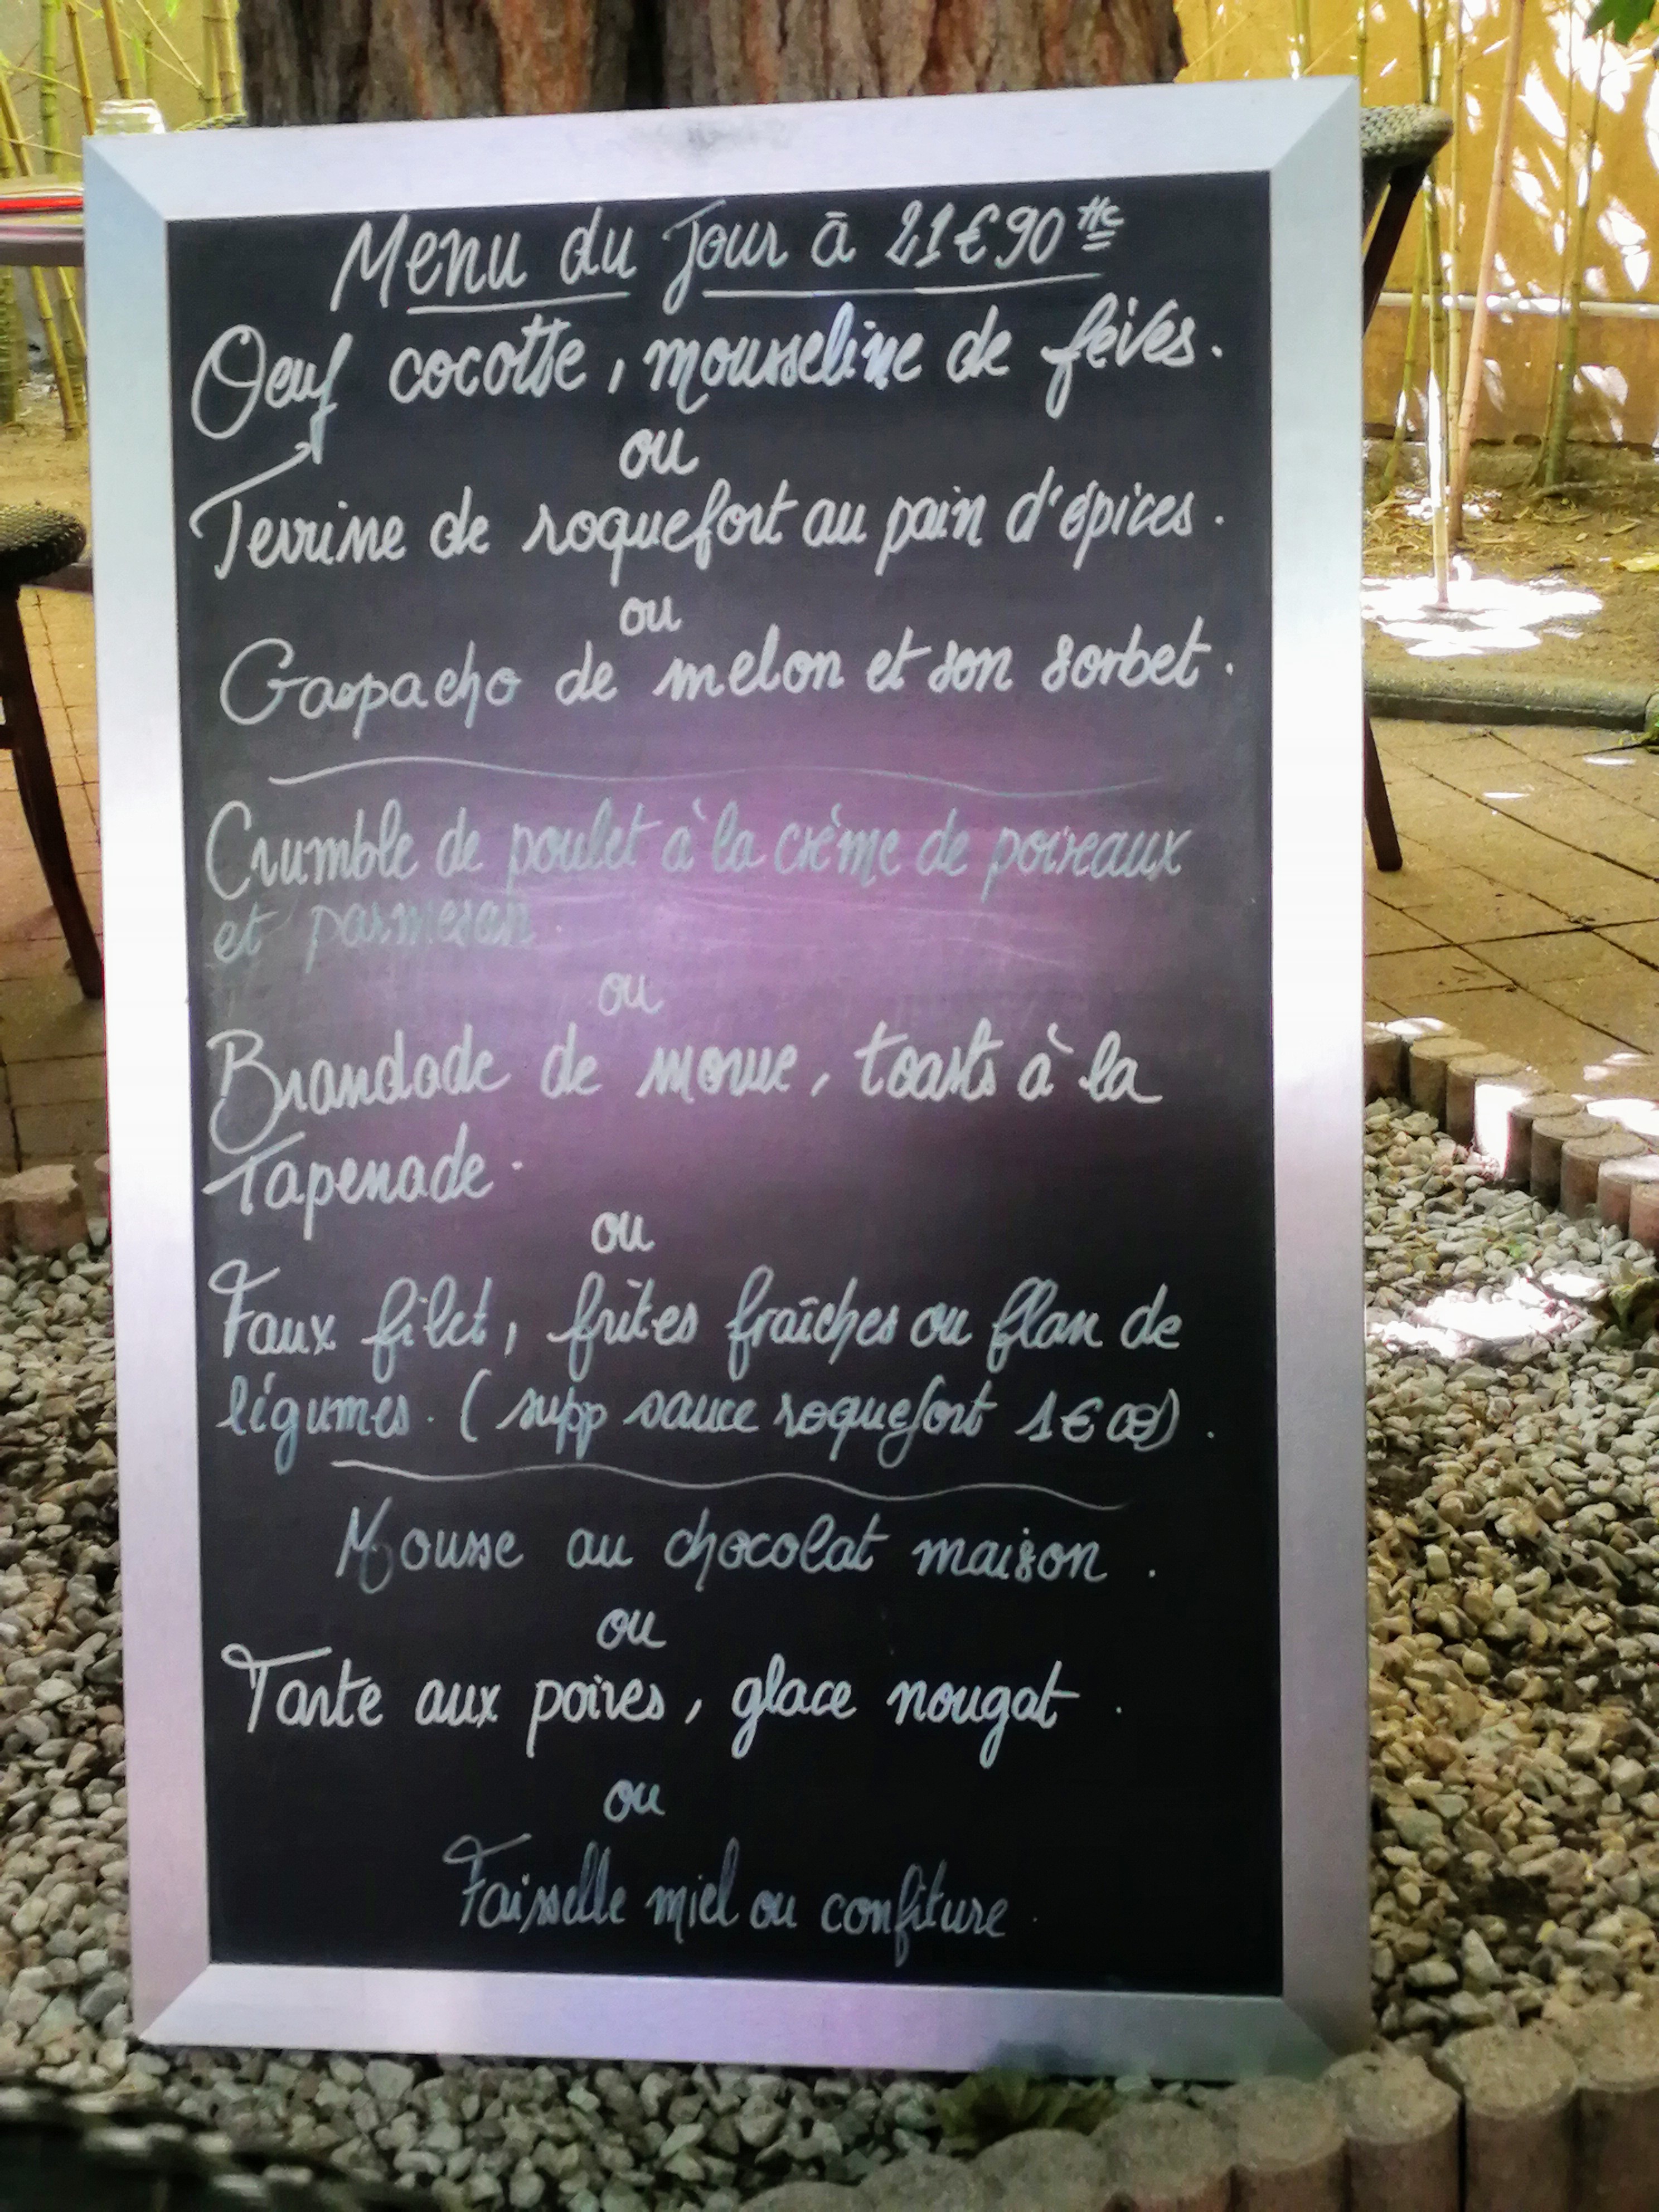 Menu du Jour à 21€90 ttc
Oeuf cocotte, mousseline de fèves.
ou
Terrine de roquefort au pain d'épices.
ou
Gaspacho de melon et son sorbet.
Crumble de poulet à la crème de poireaux
et parmesan.
ou
Brandade de morue, toasts à la
Tapenade.
ou
Faux filet, frites fraîches ou flan de
légumes. (supp sauce roquefort 1€00).
Mousse au chocolat maison.
ou
Tarte aux poires, glace nougat.
ou
Faisselle miel ou confiture.